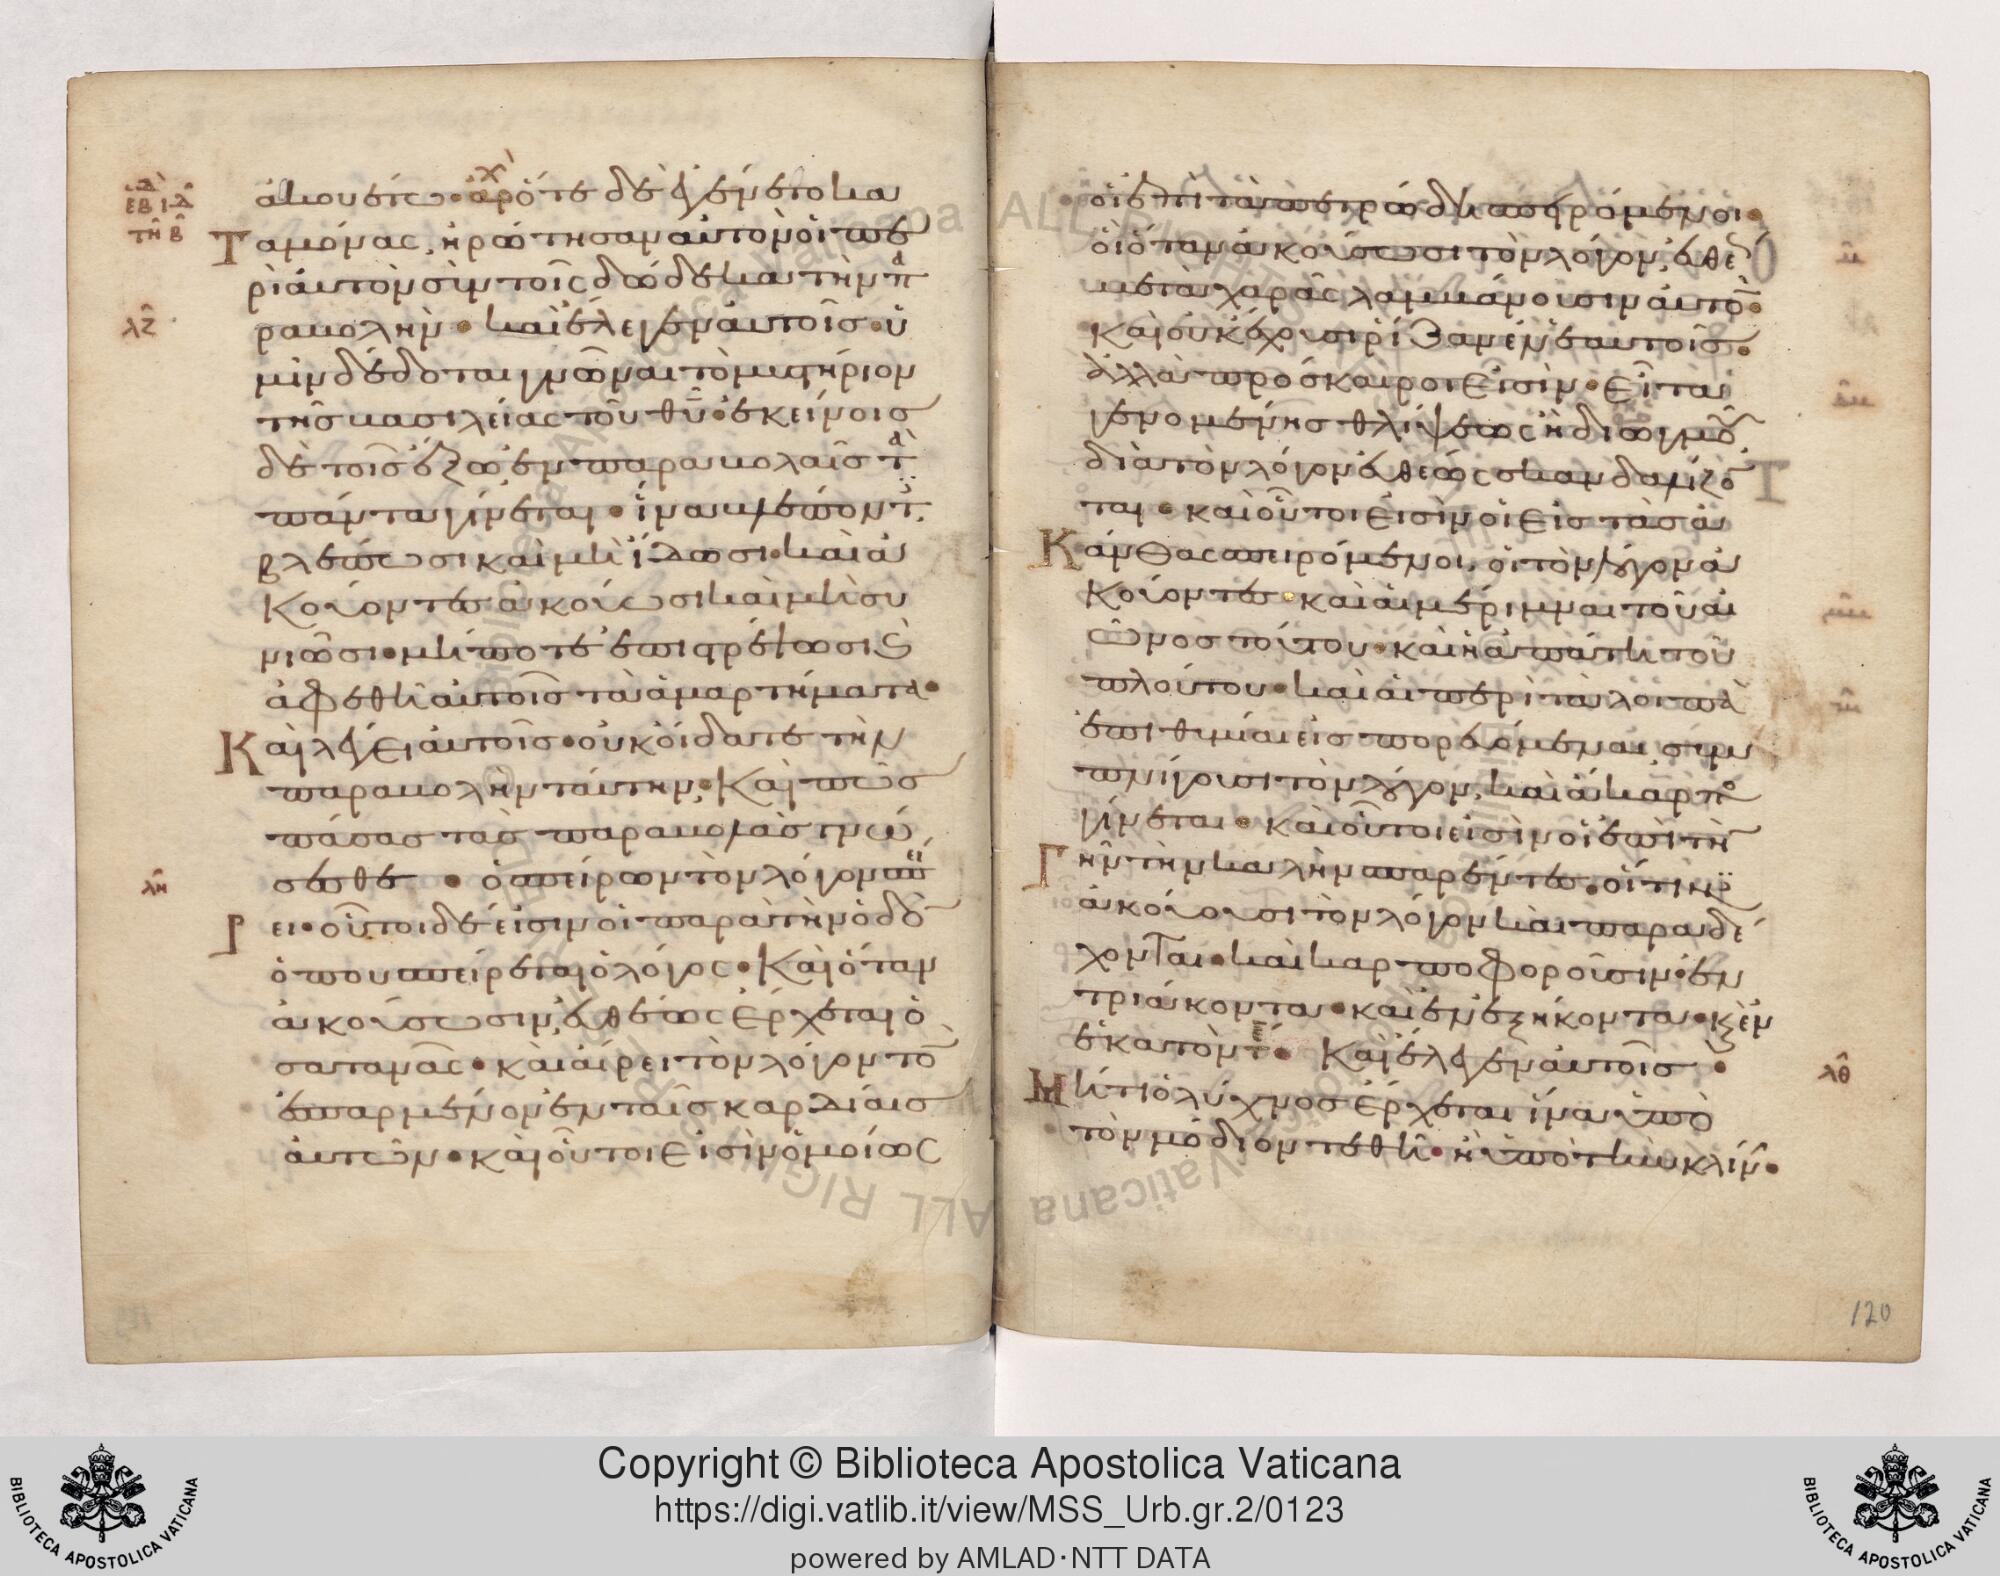 ἀκουέτω· ὅτε δὲ ἐγένετο κα
ταμόνας, ἠρώτησαν αὐτὸν οἱ πε
ρὶ αὐτὸν σὺν τοῖς δώδεκα τὴν πα
ραβολήν· καὶ ἔλεγεν αὐτοῖς· ὑ
μῖν δέδοται γνῶναι τὸ μυστήριον
τῆς βασιλείας τοῦ θυ· ἐκείνοις
δὲ τοῖς ἔξω, ἐν παραβολαῖς τὰ
πάντα γίνεται· ἵνα βλέποντες
βλέπωσι καὶ μὴ ἴδωσι· καὶ ἀ
κούοντες ἀκούωσι καὶ μὴ συ
νιῶσι· μήποτε ἐπιστρέψωσι καὶ
ἀφεθῆ αὐτοῖς τὰ ἁμαρτήματα·
Καὶ λέγει αὐτοῖς· οὐκ οἴδατε τὴν
παραβολὴν ταύτην, Καὶ πῶς
πάσας τὰς παραβολὰς γνώ
σεσθε· ὁ σπείρων τὸν λόγον σπεί
ρει· οὗτοι δέ εἰσιν οἱ παρὰ τὴν ὁδὸν
ὅπου σπείρεται ὁ λόγος· Καὶ ὅταν
ἀκούσωσιν, εὐθέως ἔρχεται ὁ
σατανᾶς· καὶ αἴρει τὸν λόγον τὸν
ἐσπαρμένον ἐν ταῖς καρδίαις
αὐτῶν· καὶ οὗτοι εἰσὶν ὁμοίως
λζ
λη
οἱ ἐπὶ τὰ πετρώδη σπειρόμενοι·
οἳ ὅταν ἀκούσωσι τὸν λόγον, εὐθέως
μετὰ χαρᾶς λαμβάνουσιν αὐτόν·
καὶ οὐκ ἔχουσι ῥίζαν ἐν ἑαυτοῖς·
ἀλλὰ πρόσκαιροι εἰσίν· εἶτα
γενομένης θλίψεως ἢ διωγμοῦ
διὰ τὸν λόγον, εὐθέως σκανδαλίζον
ται· καὶ οὗτοι εἰσὶν οἱ εἰς τὰς ἀ
κάνθας σπειρόμενοι, οἱ τὸν λόγον ἀ
κούοντες· καὶ αἱ μέριμναι τοῦ αἰ
ῶνος τούτου· καὶ ἡ ἀπάτη τοῦ
πλούτου· καὶ αἱ περὶ τὰ λοιπὰ
ἐπιθυμίαι εἰσπορευόμεναι, συμ
πνίγουσι τὸν λόγον, καὶ ἄκαρπος
γίνεται· καὶ οὗτοι εἰσὶν οἱ ἐπὶ τὴν
γῆν τὴν καλὴν σπαρέντες· οἵτινες
ἀκούουσι τὸν λόγον καὶ παραδέ
χονται· καὶ καρποφοροῦσιν· ἐν
τριάκοντα· καὶ ἐν ἑξήκοντα· κ ἐν
ἑκατόν· Καὶ ἔλεγεν αὐτοῖς·
Μήτι ὁ λύχνος ἔρχεται ἵνα ὑπὸ
τὸν μόδιον τεθῆ· ἢ ὑπὸ τὴν κλίνην·
λθ
120
Copyright © Biblioteca Apostolica Vaticana
https://digi.vatlib.it/view/MSS_Urb.gr.2/0123
powered by AMLAD·NTT DATA
BIBLIOTECA APOSTOLICA VATICANA
BIBLIOTECA APOSTOLICA VATICANA